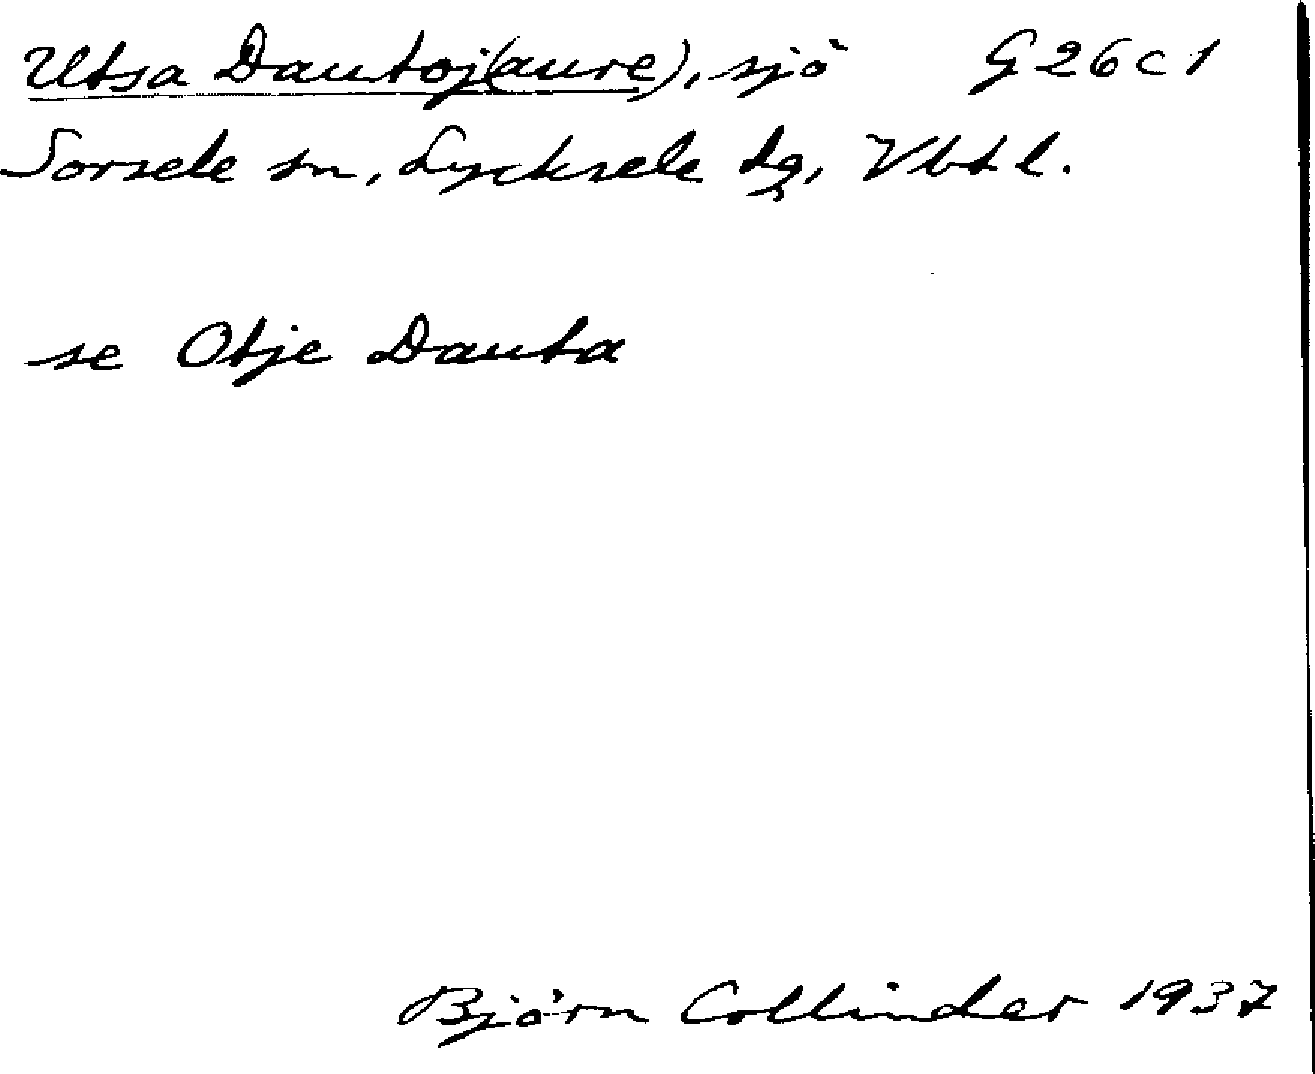 Utsa Dautoj(aure), sjö G26c1
Sorsele sn, Lycksele lg, Vbtl.
se Otje Dauta
Björn Collinder 1937